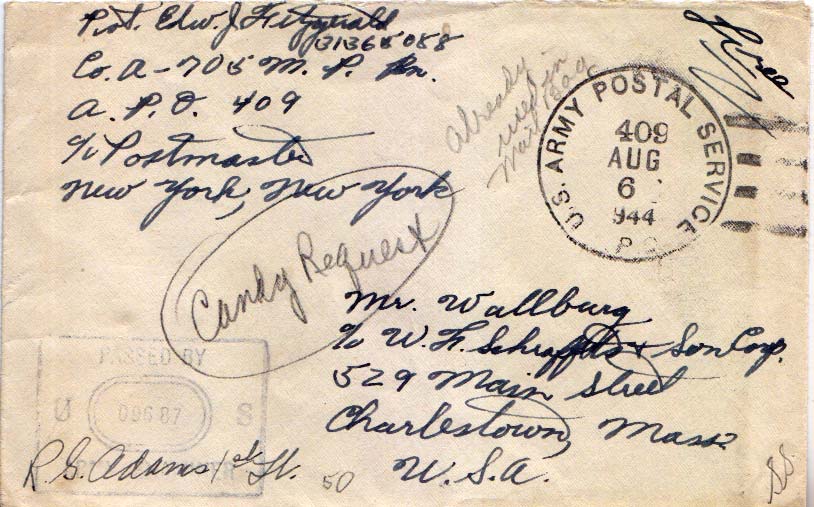 Pvt. Edw. J. Fitzgerald
31365088
Co. A - 705 M. P. Bn.
A. P. O. 409
c/o Postmaster
New York, New York
Already
used in
Mail Bag
Free
U.S. ARMY POSTAL SERVICE
409
AUG
6
944
P
Candy Request
Mr. Wallburg
c/o W. F. Schraffts & Son Corp.
529 Main Street
Charlestown, Mass.
U.S.A.
PASSED BY
U 09687 S
R. G. Adams 1st Lt.
50